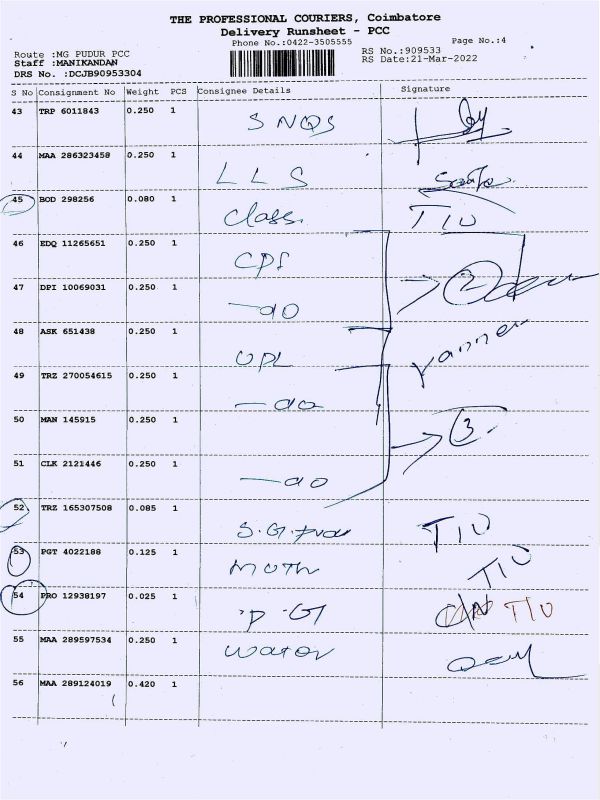 THE PROFESSIONAL COURIERS, Coimbatore
Delivery Runsheet - PCC
Phone No.:0422-3505555 Page No.:4
Route :MG PUDUR PCC RS No.:909533
Staff :MANIKANDAN RS Date:21-Mar-2022
DRS No. :DCJB90953304
S No Consignment No Weight PCS Consignee Details Signature
43 TRP 6011843 0.250 1 SNQS
44 MAA 286323458 0.250 1 LLS
45 BOD 298256 0.080 1 Class TIU
46 EDQ 11265651 0.250 1 CPS
47 DPI 10069031 0.250 1 -do 2
48 ASK 651438 0.250 1 UPL
49 TRZ 270054615 0.250 1 -do
50 MAN 145915 0.250 1 3
51 CLK 2121446 0.250 1 -do
52 TRZ 165307508 0.085 1 TIU
53 PGT 4022188 0.125 1 TIU
54 PRO 12938197 0.025 1 P.GT TIU
55 MAA 289597534 0.250 1 Water
56 MAA 289124019 0.420 1